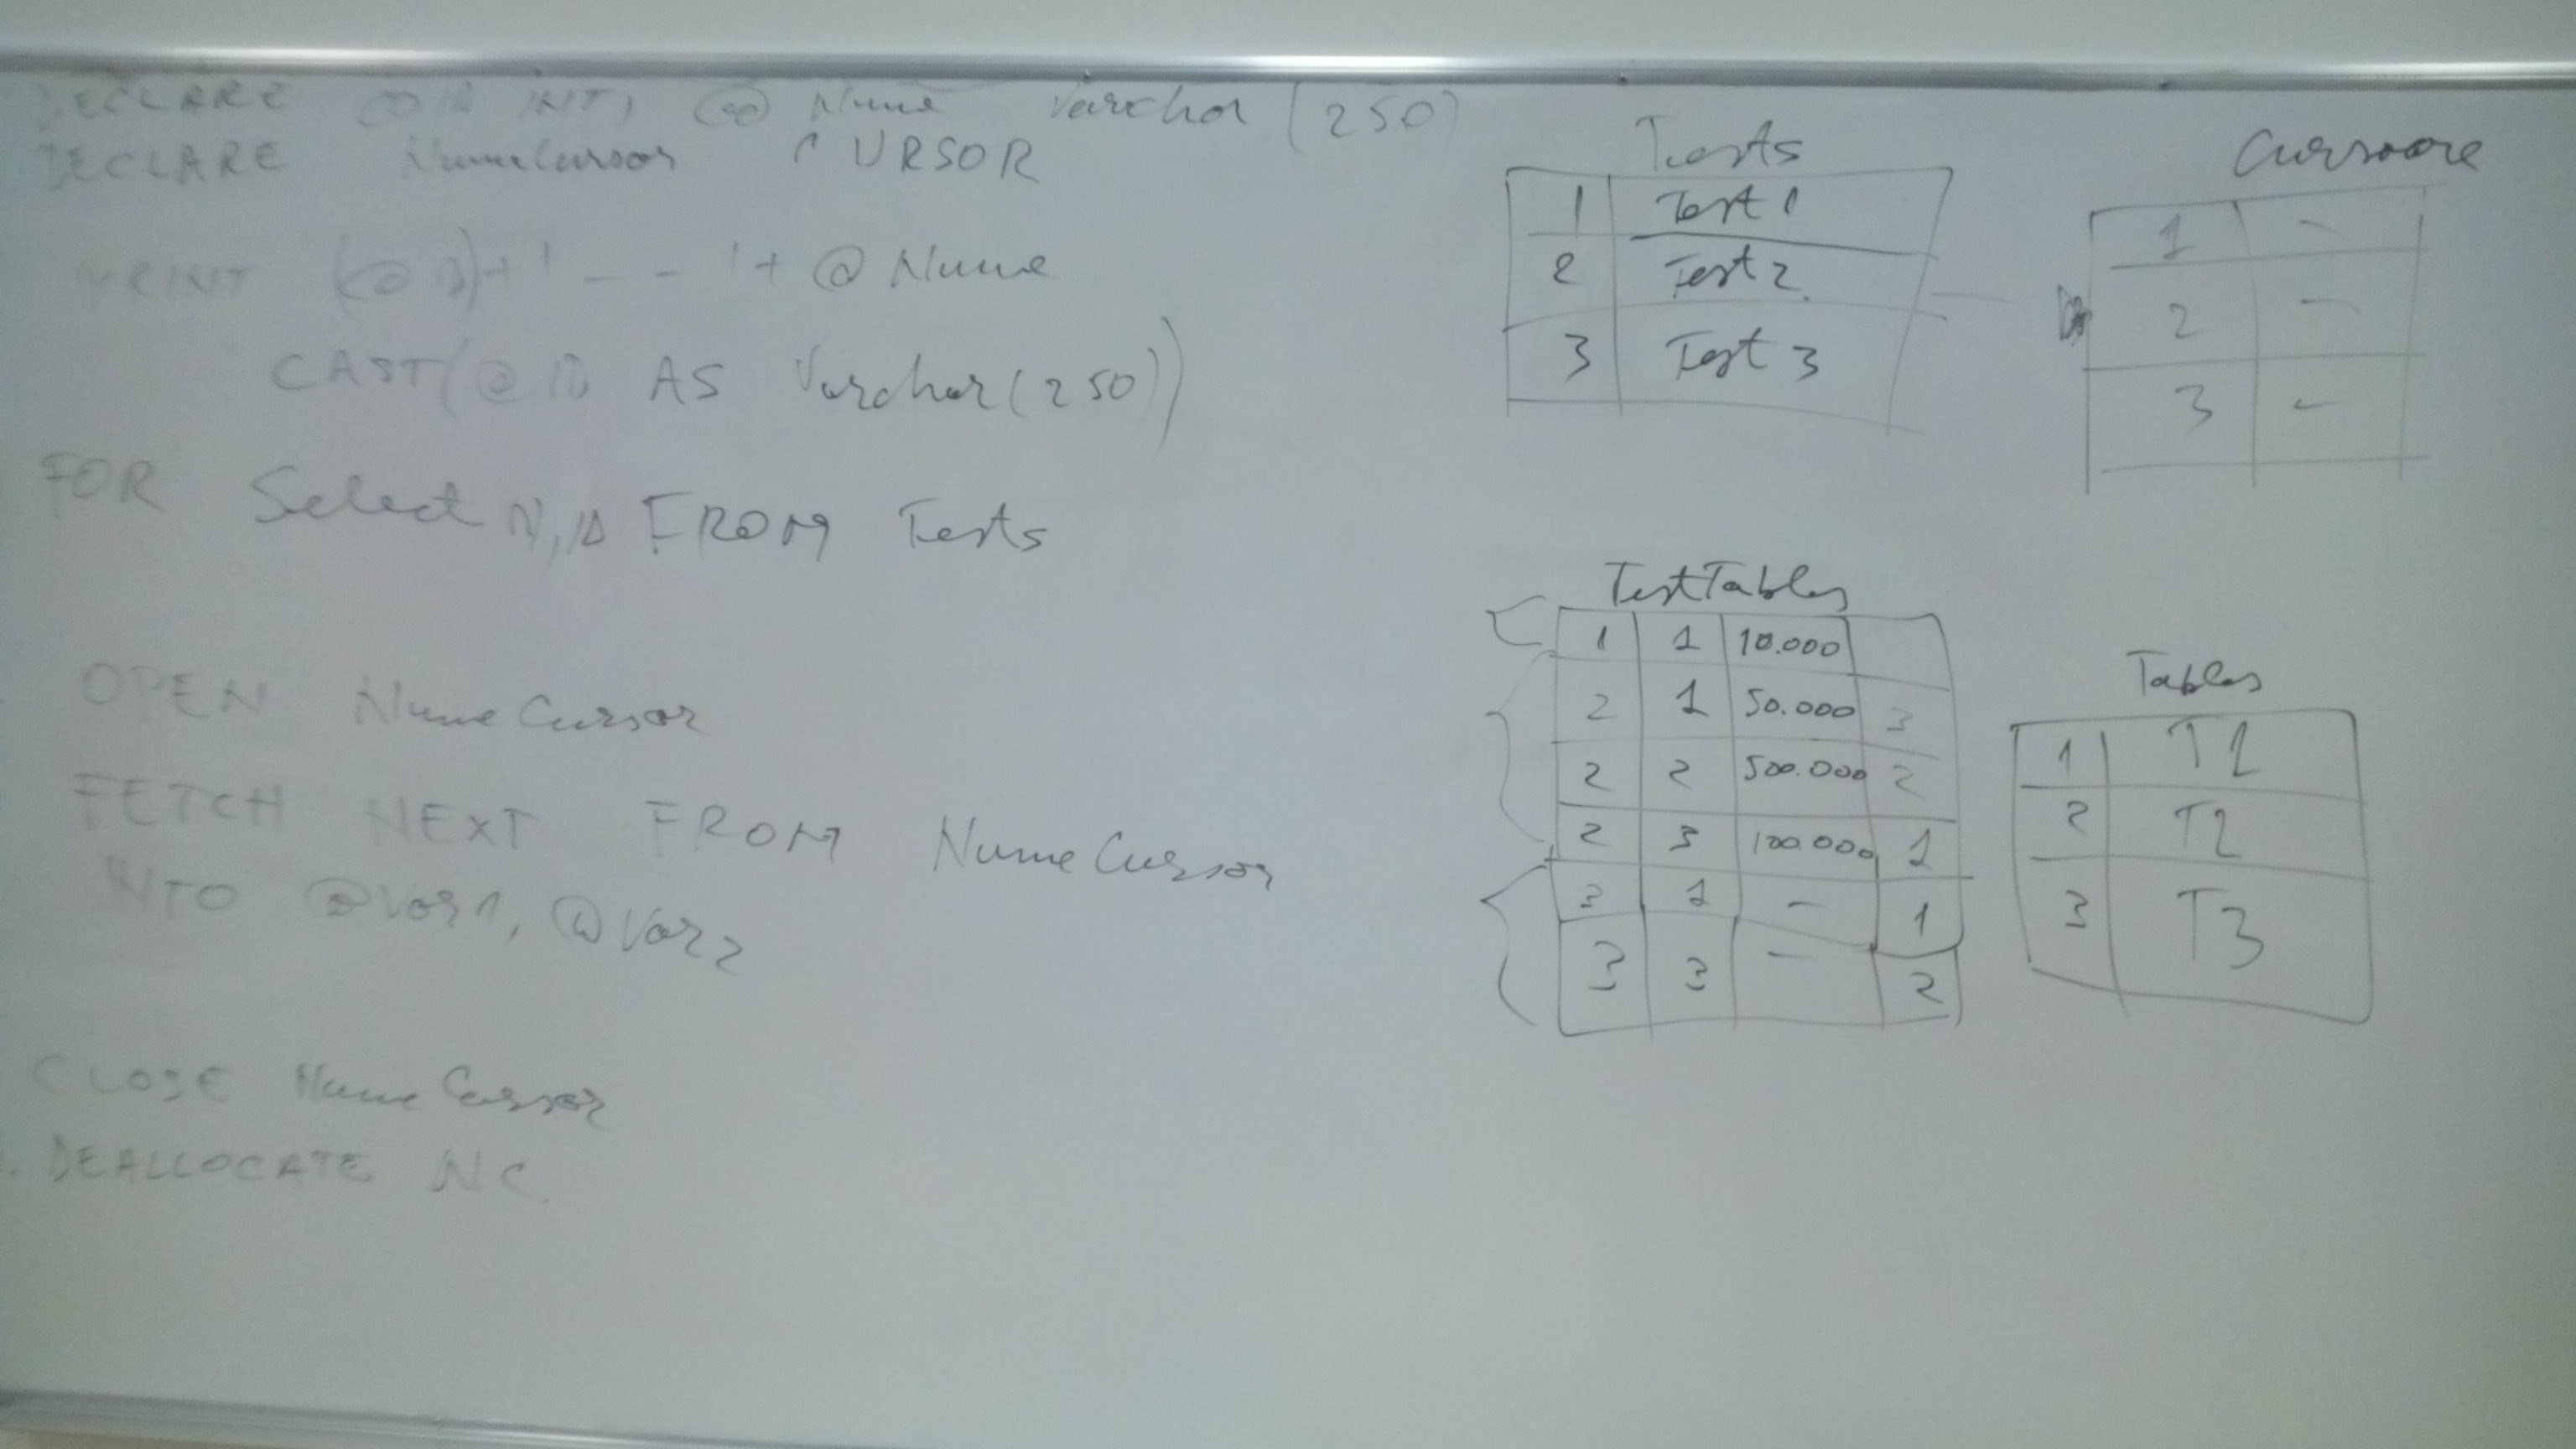 DECLARE @ID INT, @Nume Varchar (250)
DECLARE NumeCursor CURSOR
PRINT (@ID)+'--'+ @Nume
CAST(@ID AS Varchar(250))
FOR Select N,ID FROM Tests
OPEN NumeCursor
FETCH NEXT FROM NumeCursor
INTO @Var1, @Var2
CLOSE NumeCursor
DEALLOCATE NC.
Tests
1 Test 1
2 Test 2
3 Test 3
Cursoare
1 -
2 -
3 -
TestTables
1 1 10.000
2 1 50.000 3
2 2 500.000 2
2 3 100.000 1
3 1 - 1
3 3 - 2
Tables
1 T1
2 T2
3 T3